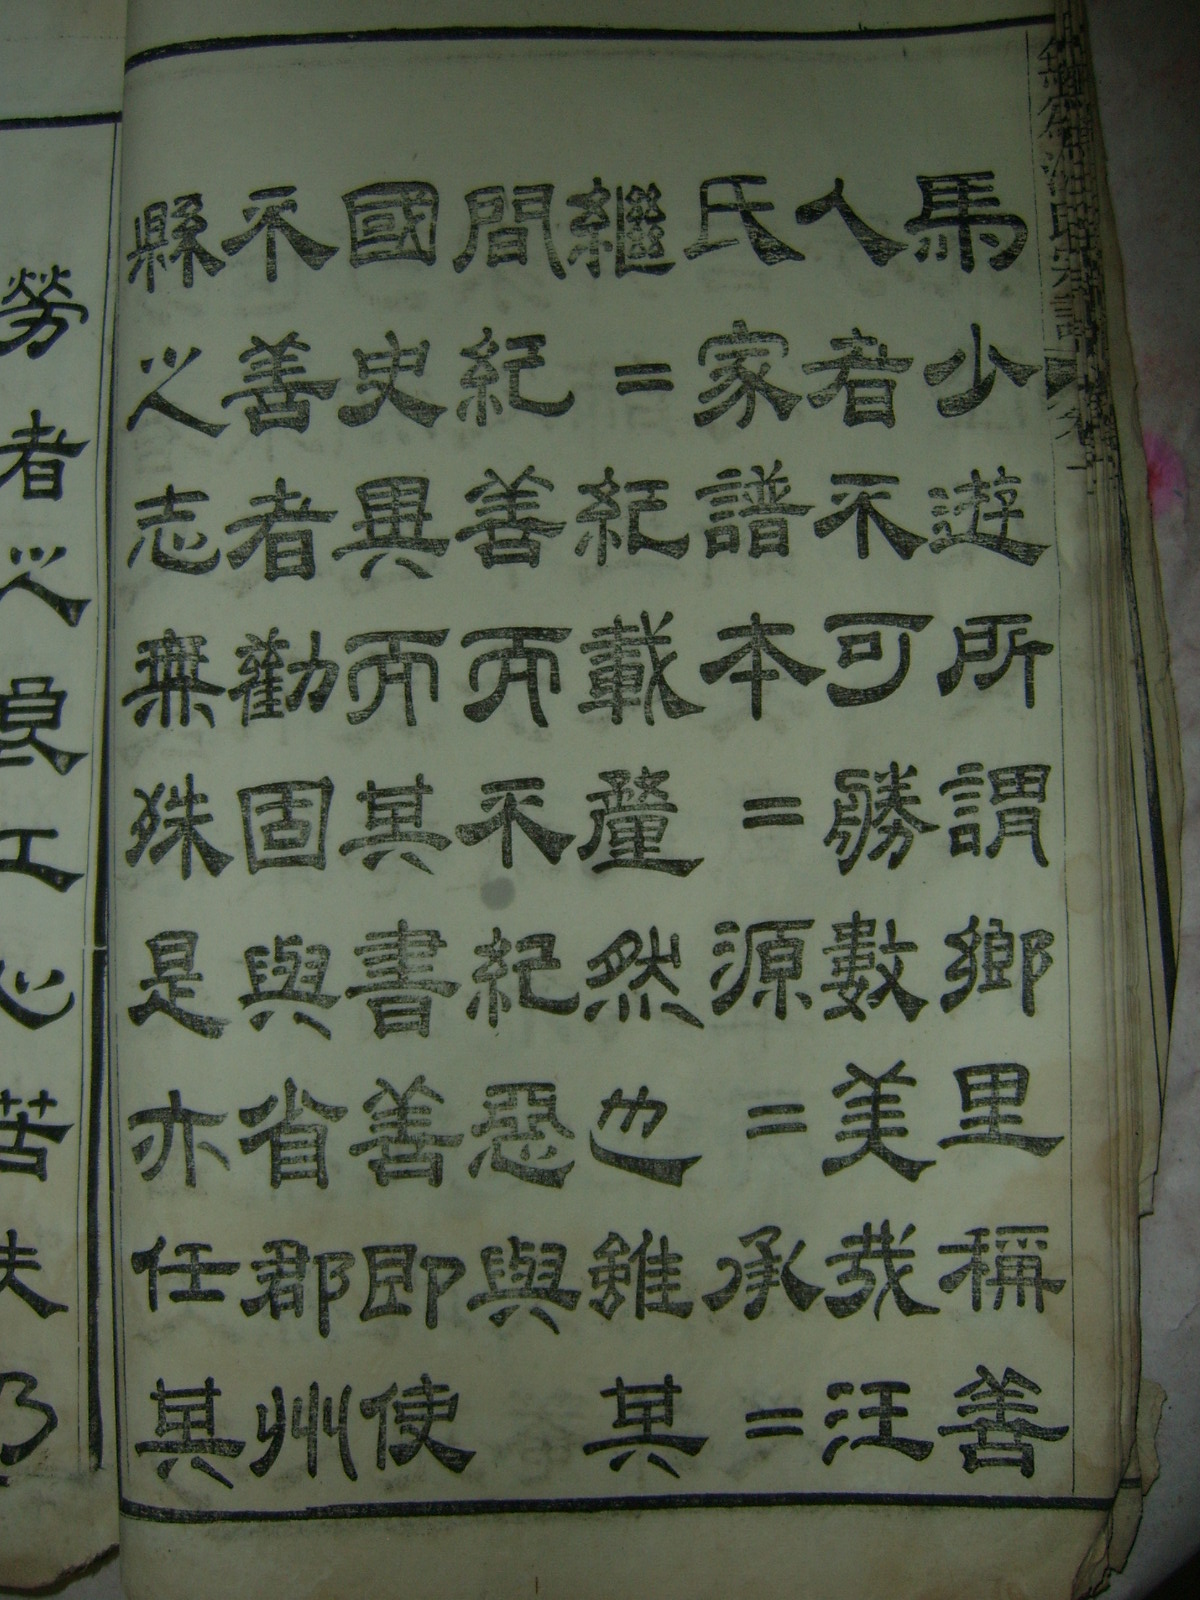 馬少遊所謂鄉里稱善
人者不可勝數美哉汪
氏家譜本=源=承=
繼=紀載釐然也雖其
間紀善而不紀惡與
國史異而其書善即使
不善者勸固與省郡州
縣之志無殊是亦任其
勞者之良工心苦夫乃